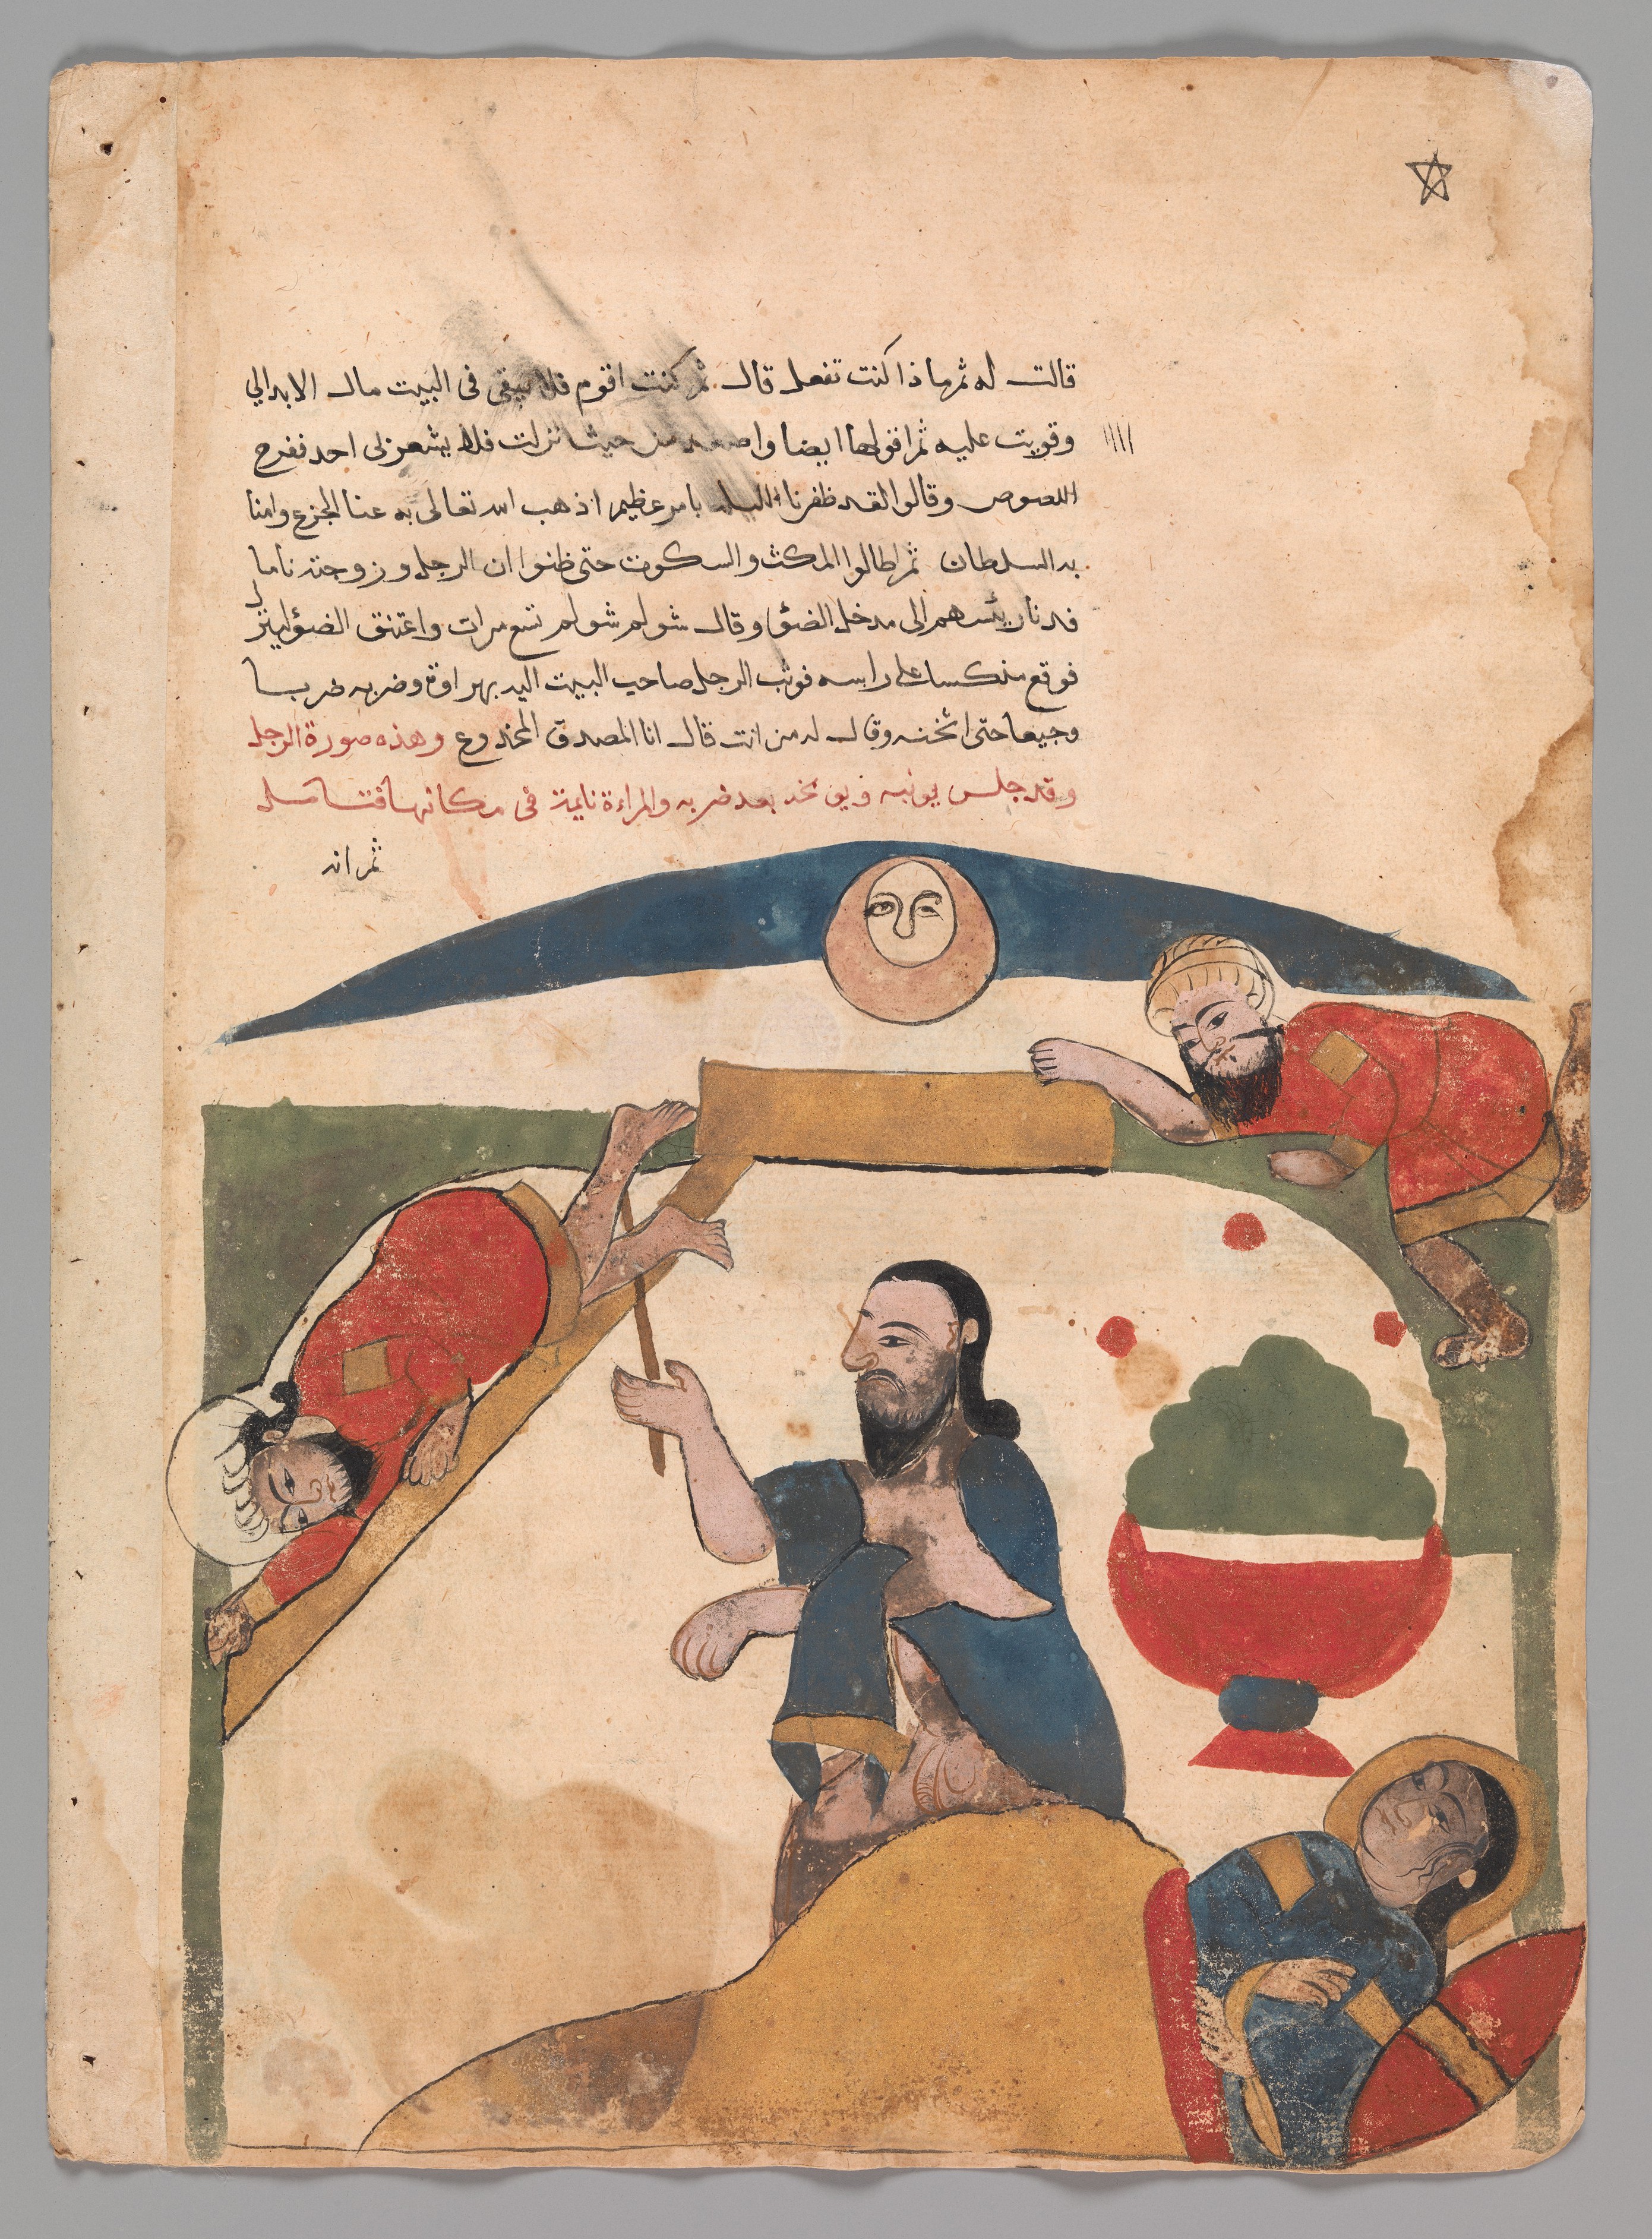 قالت له ثم ماذا كنت تفعل قال ثم كنت اقوم فلا يبقى فى البيت مال الا بدالي
وقويت عليه ثم اقولها ايضا واصعد من حيث نزلت فلا يشعر لى احد ففرح
اللصوص وقالوا لقد ظفرنا الليلة بامر عظيم اذ هب الله تعالى به عنا الجزع وامنا
به السلطان ثم اطالوا المكث والسكوت حتى ظنوا ان الرجل وزوجته ناما
فدنا رئيسهم الى مدخل الضؤ وقال شولم شولم تسع مرات واعتنق الضؤ لينزل
فوقع منكسا على راسه فوثب الرجل صاحب البيت اليه بهراوة وضربه ضربا
وجيعا حتى اثخنه وقال له من انت قال انا المصدق المخدوع وهذه صورة الرجل
وقد جلس يونبه ويوبخه بعد ضربه والمراءة نايمة فى مكانها
ثم انه